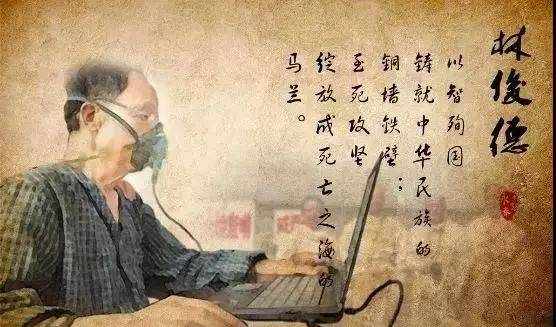 林俊德
以智殉国
铸就中华民族的
铜墙铁壁；
至死攻坚
绽放成死亡之海的
马兰。